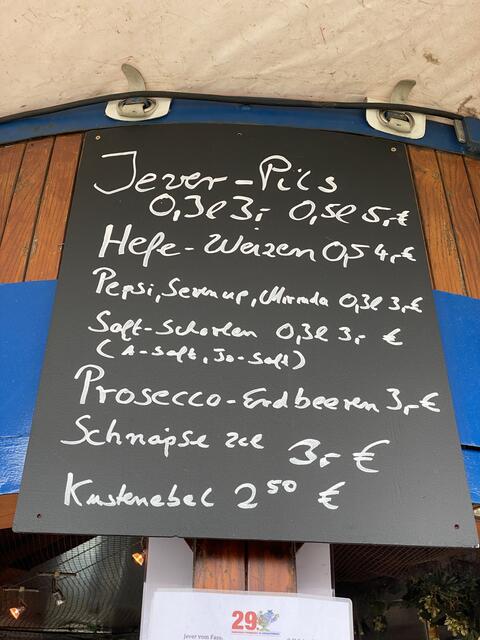 Jever-Pils
0,3l 3,- 0,5l 5,-€
Hefe-Weizen 0,5 4,-€
Pepsi, Seven up, Mirinda 0,3l 3,-€
Saft-Schorlen 0,3l 3,- €
(A-Saft, Jo-Saft)
Prosecco-Erdbeeren 3,-€
Schnäpse 2cl 3,- €
Küstenebel 2⁵⁰ €
29.
Jever vom Fass